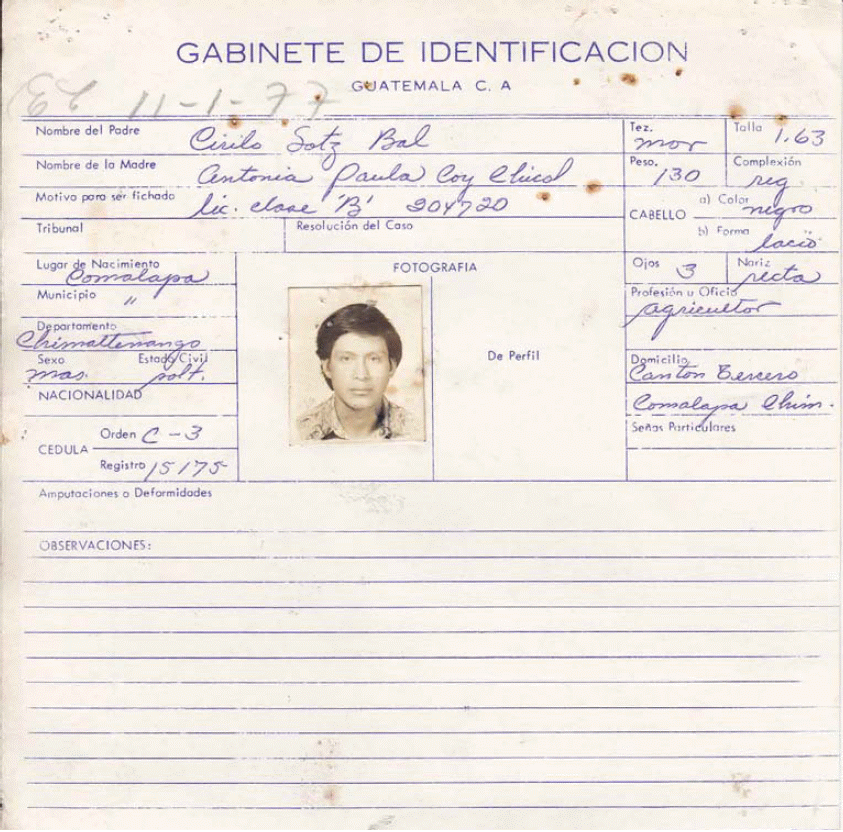 GABINETE DE IDENTIFICACION
GUATEMALA C. A
11-1-77
Nombre del Padre Cirilo Sotz Bal
Nombre de la Madre Antonia Paula Coy Chicol
Motivo para ser fichado lic. clase 'B' 204720
Tribunal
Resolución del Caso
Tez. mor
Talla 1.63
Peso. 130
Complexión reg
CABELLO
a) Color negro
b) Forma lacio
Lugar de Nacimiento
Comalapa
Municipio "
Departamento
Chimaltenango
Sexo Estado Civil
mas. solt.
NACIONALIDAD
CEDULA
Orden C-3
Registro 15175
FOTOGRAFIA
De Perfil
Ojos 3
Nariz recta
Profesión u Oficio
agricultor
Domicilio
Canton Tercero
Comalapa Chim.
Señas Particulares
Amputaciones o Deformidades
OBSERVACIONES: